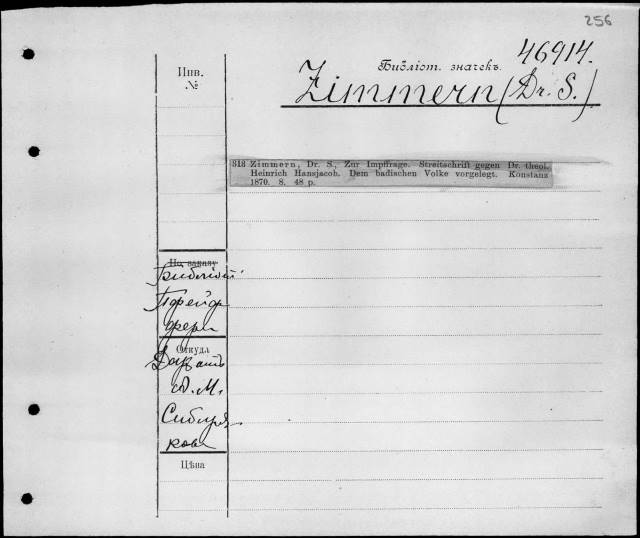 256
46914.
Инв.
№
Библіот. значекъ
Zimmern (Dr. S.)
313 Zimmern, Dr. S., Zur Impffrage. Streitschrift gegen Dr. theol.
Heinrich Hansjacob. Dem badischen Volke vorgelegt. Konstanz
1870. 8. 48 p.
По заказу
Библіот
Пфейф
фера
Откуда
А. М.
Сибиря
кова
Цѣна